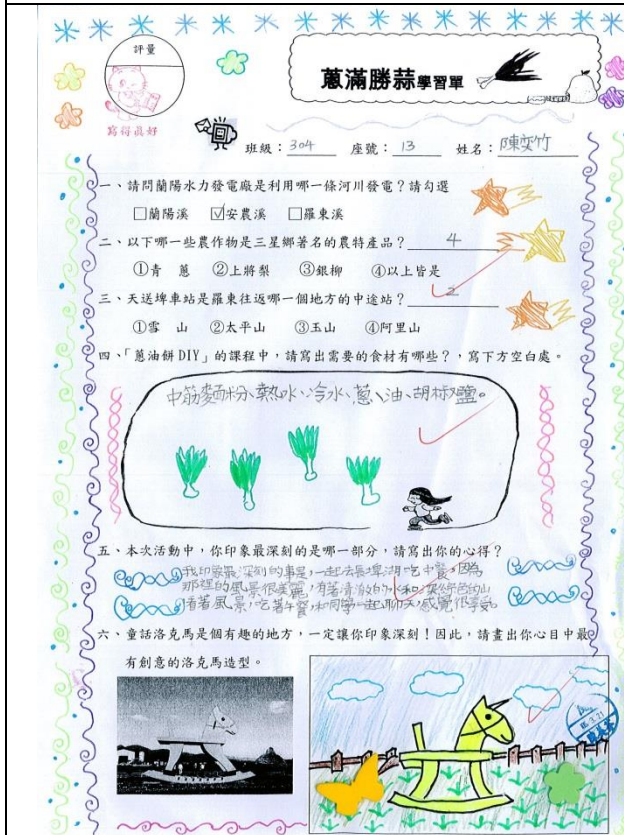 評量
寫得真好
蔥滿勝蒜學習單
班級：304 座號：13 姓名：陳奕竹
一、請問蘭陽水力發電廠是利用哪一條河川發電？請勾選
□蘭陽溪 ☑安農溪 □羅東溪
二、以下哪一些農作物是三星鄉著名的農特產品？ 4
①青 蔥 ②上將梨 ③銀柳 ④以上皆是
三、天送埤車站是羅東往返哪一個地方的中途站？ 2
①雪 山 ②太平山 ③玉山 ④阿里山
四、「蔥油餅DIY」的課程中，請寫出需要的食材有哪些？，寫下方空白處。
中筋麵粉、熱水、冷水、蔥、油、胡椒鹽。
五、本次活動中，你印象最深刻的是哪一部分，請寫出你的心得？
我印象最深刻的事是，一起去長埤湖吃中餐，因為
那裡的風景很美麗，有著清澈的水和翠綠色的山
看著風景，吃著午餐和同學一起聊天感覺很享受
六、童話洛克馬是個有趣的地方，一定讓你印象深刻！因此，請畫出你心目中最
有創意的洛克馬造型。